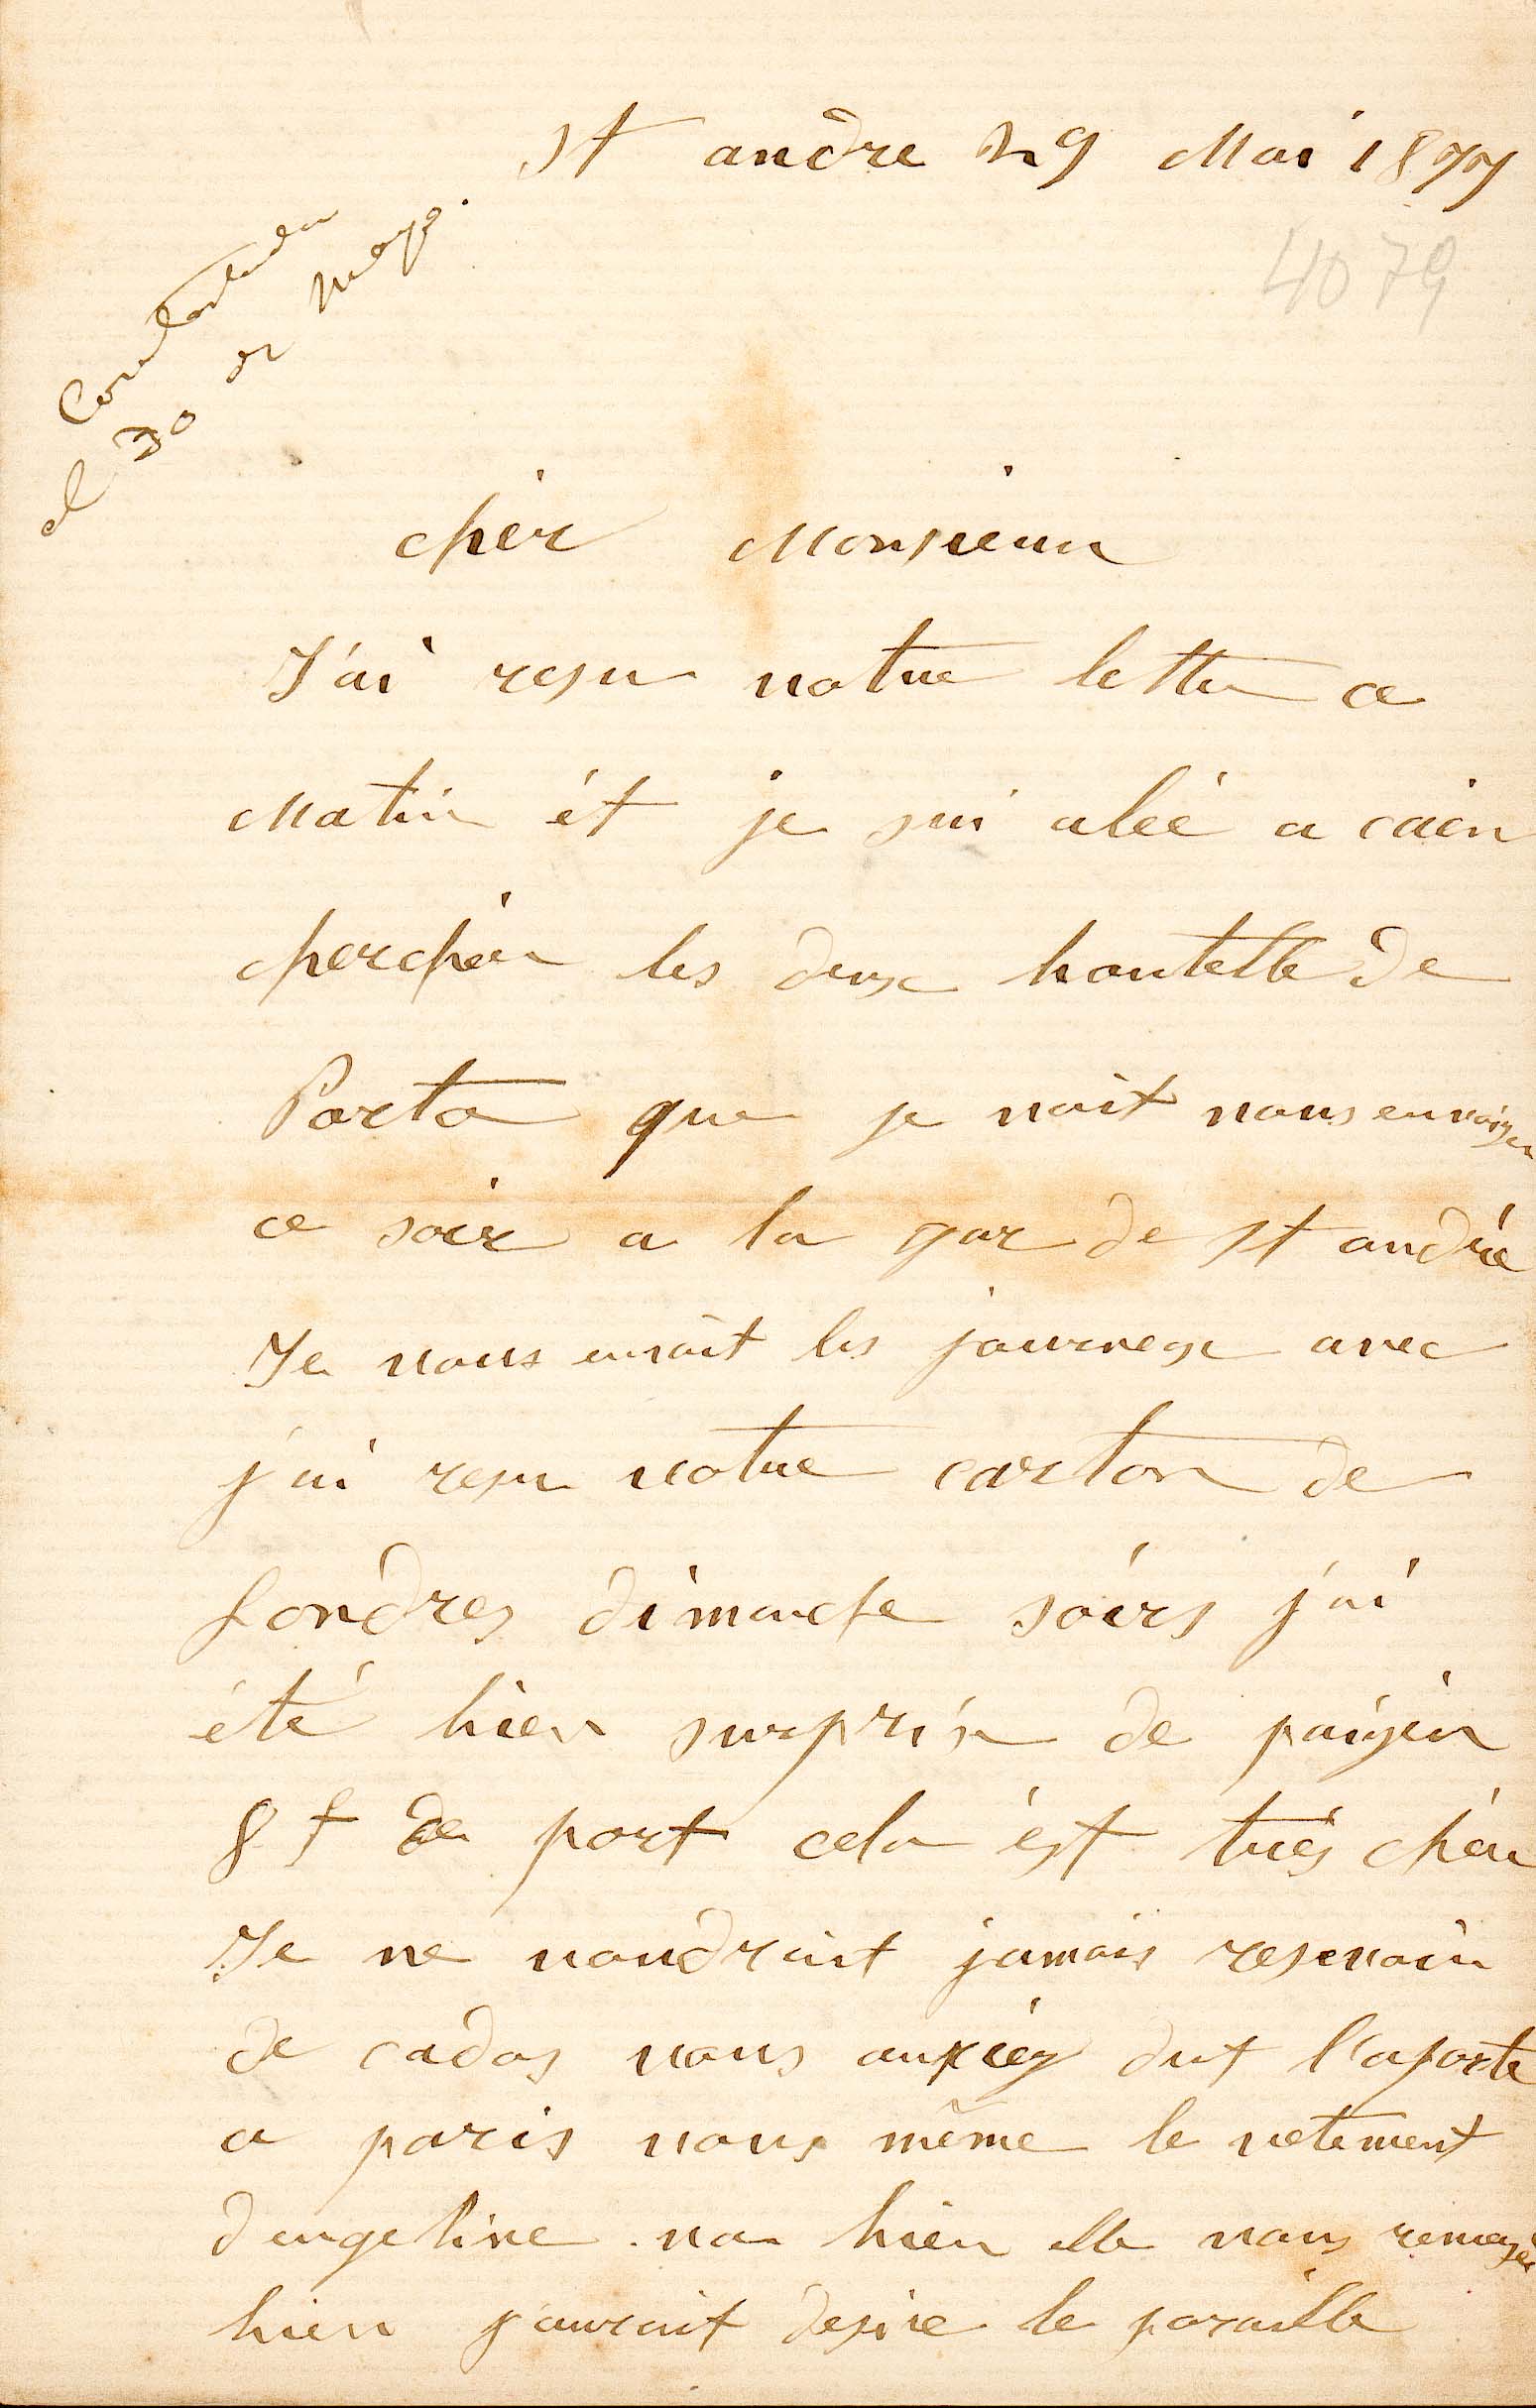 St andre 29 Mai 1877
4079
el 30 de Mayo.
cher Monsieur
J'ai resu votre lettre ce
Matin ét je sui alée a caen
chercher les deux boutelle de
Porto que je vait vous envoiyer
ce soir a la gar de st andrée
Je vous envoit les journeax avec
j'ai resu votre carton de
Londres dimanche soirs j'ai
été bien surprise de paiyer
8 f de port cela ést trés chér
Je ne voudrait jamais resevoir
de cados vous auriéz dut l'aporte
a paris vous même le vetement
d'angeline va bien elle vous remersie
bien j'aurait desire le paraille